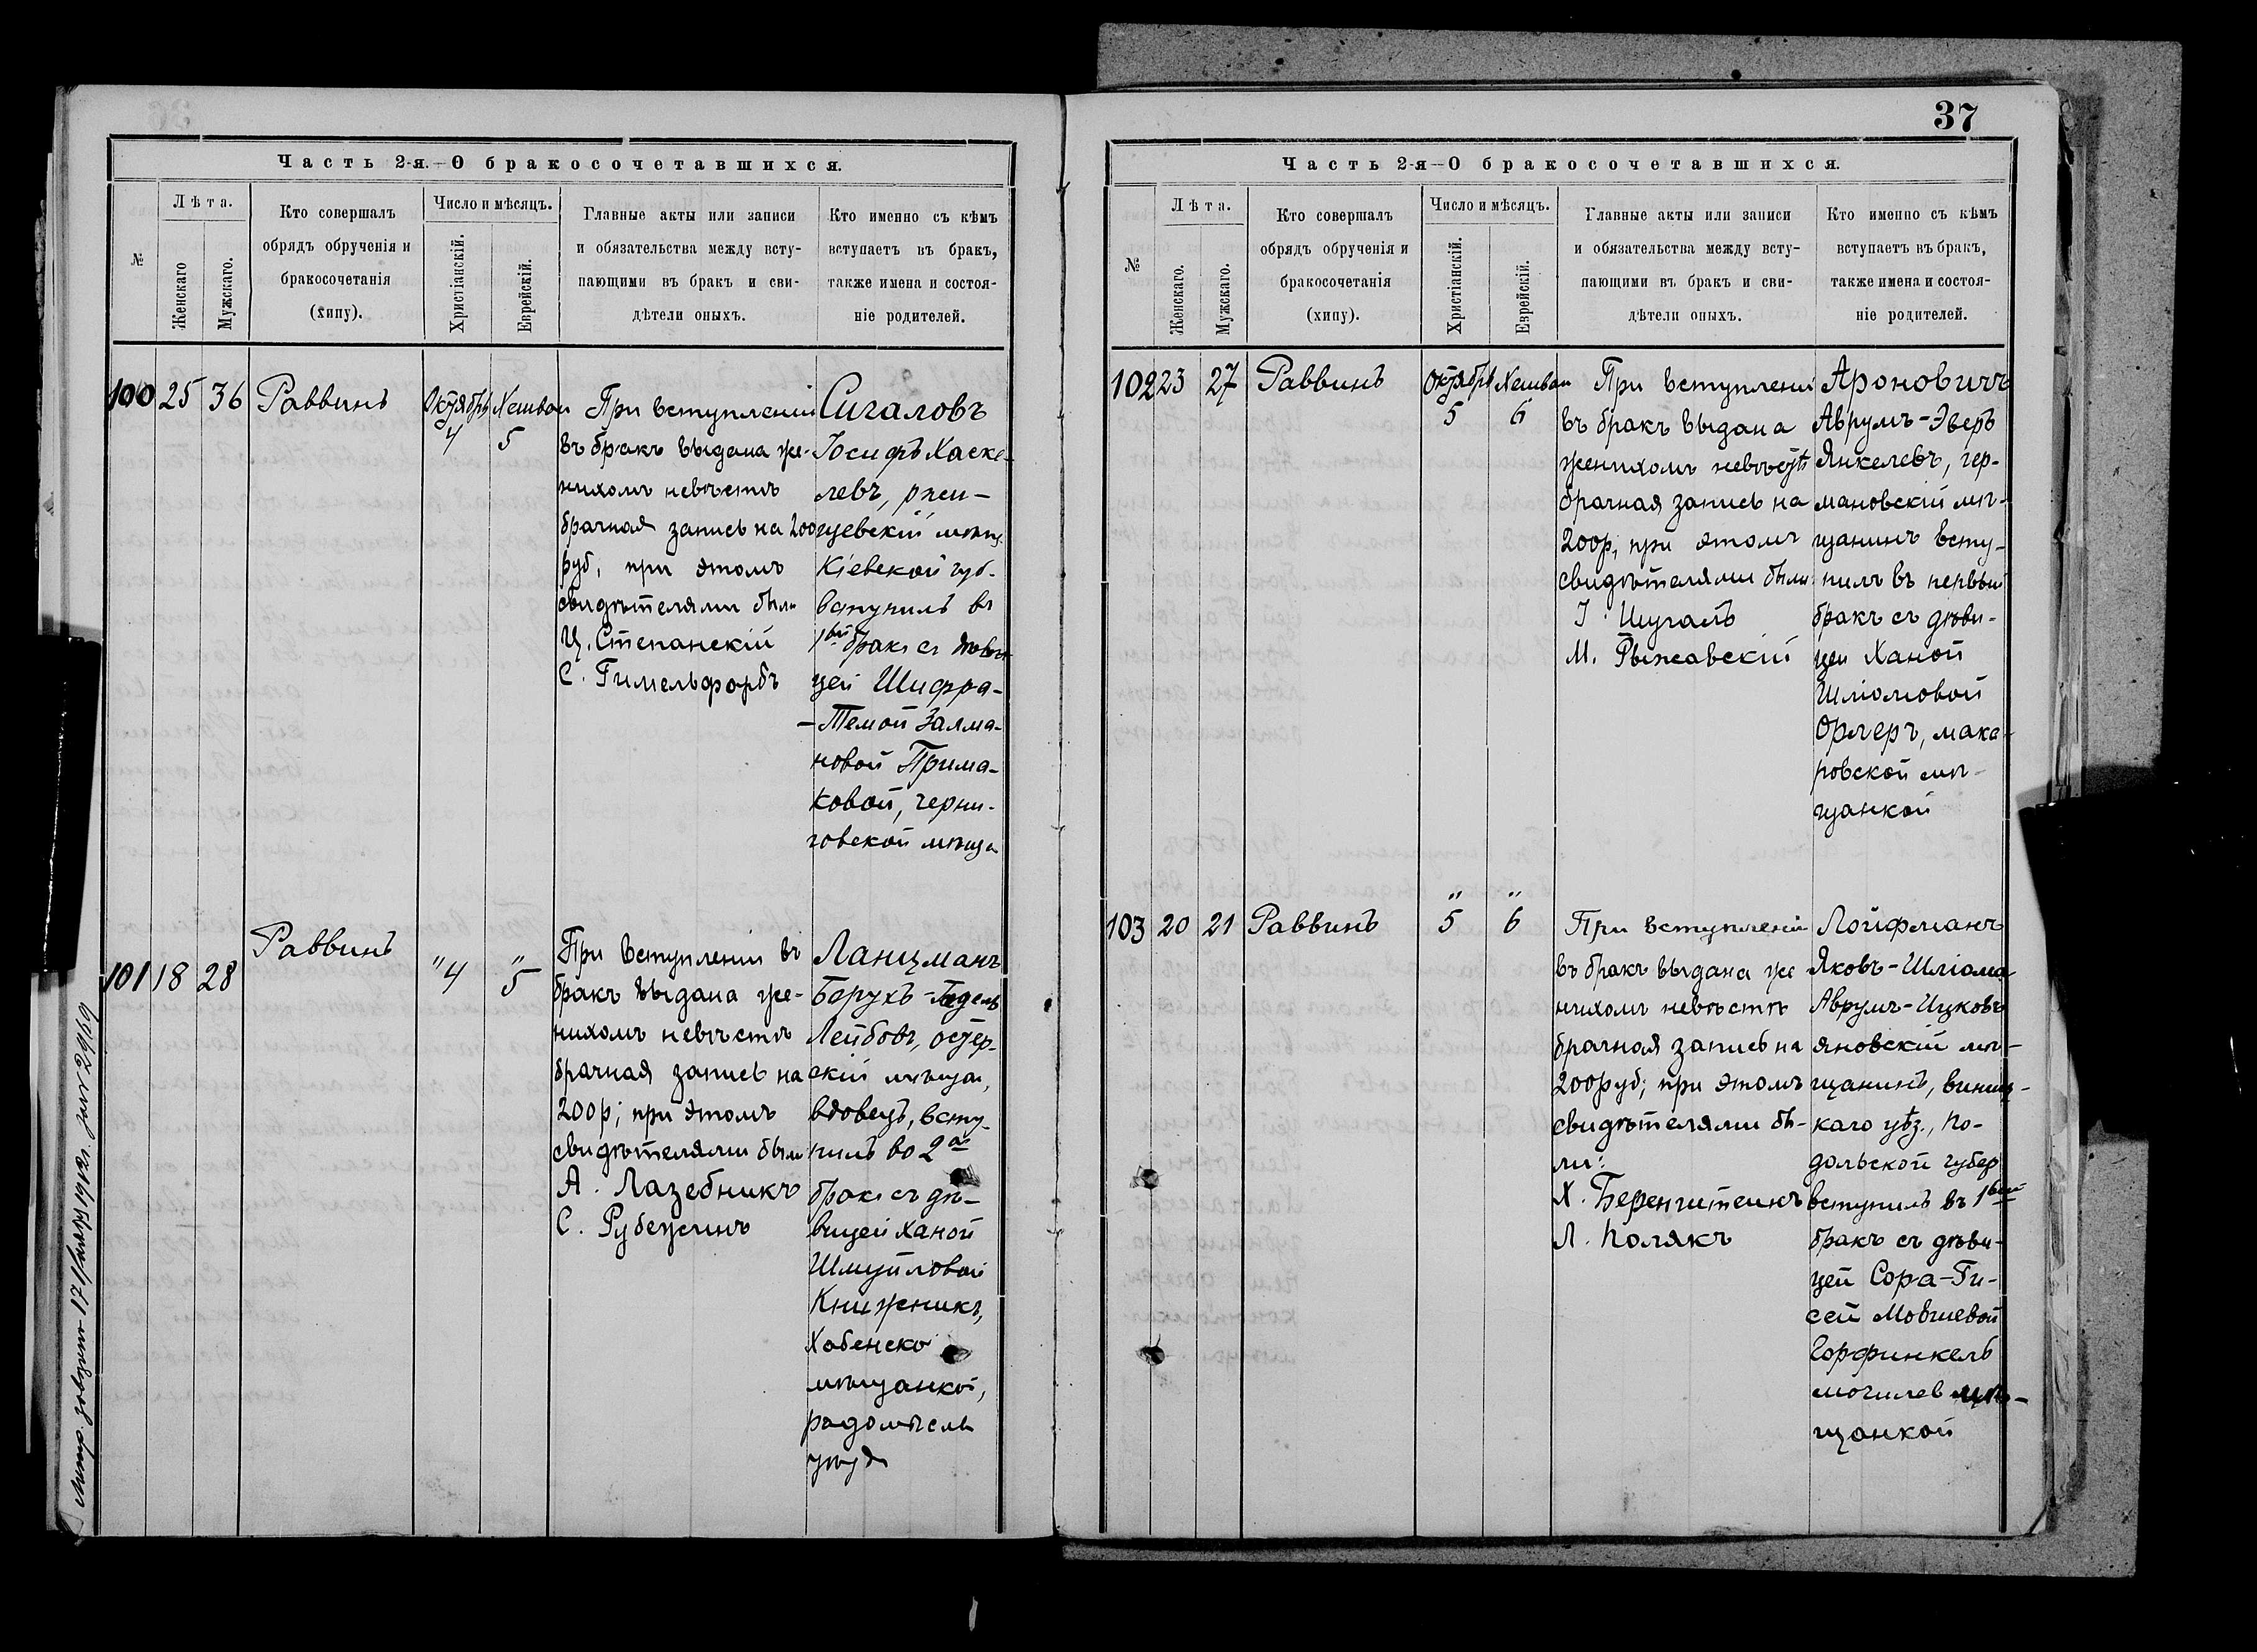 Часть 2-я.–О бракосочетавшихся.
№
Лѣта.
Женскаго
Мужскаго.
Кто совершалъ
обрядъ обрученія и
бракосочетанія
(хипу).
Число и мѣсяцъ.
Христіанскій.
Еврейскій.
Главные акты или записи
и обязательства между всту-
пающими въ бракъ и сви-
дѣтели оныхъ.
Кто именно съ кѣмъ
вступаетъ въ бракъ,
также имена и состоя-
ніе родителей.
100 25 36 Раввинъ
Октябрь 4
Хешван 5
При вступленіи
въ бракъ выдана же-
нихомъ невѣстѣ
брачная запись на 200
руб, при этомъ
свидѣтелями были
Ц. Степанскій
С. Гимельфорбъ
Сигаловъ
Іосифъ Хаске-
левъ, ржи-
щевскій мѣщ.
Кіевской губ.
вступилъ въ
1ый бракъ съ дѣви
цей Шифра-
-Темой Залма-
новой Прима-
ковой, черни-
говской мѣща
101 18 28 Раввинъ
" 4
" 5
При вступленіи въ
бракъ выдана же-
нихомъ невѣстѣ
брачная запись на
200р; при этомъ
свидѣтелями были
А. Лазебникъ
С. Рубежинъ
Ланцманъ
Берухъ-Гедель
Лейбовъ, остер-
скій мѣщан,
вдовецъ, всту-
пилъ во 2ой
бракъ съ дѣ-
вицей Ханой
Шмуйловой
Книжникъ,
Хабенско
мѣщанкой,
радомысль
уѣзд
37
Часть 2-я–О бракосочетавшихся.
№
Лѣта.
Женскаго.
Мужскаго.
Кто совершалъ
обрядъ обрученія и
бракосочетанія
(хипу).
Число и мѣсяцъ.
Христіанскій.
Еврейскій.
Главные акты или записи
и обязательства между всту-
пающими въ бракъ и сви-
дѣтели оныхъ.
Кто именно съ кѣмъ
вступаетъ въ бракъ,
также имена и состоя-
ніе родителей.
102 23 27 Раввинъ
Октябрь 5
Хешван 6
При вступлени
въ бракъ выдана
женихомъ невѣстѣ
брачная запись на
200р, при этомъ
свидѣтелями были
І. Шугалъ
М. Рыжавскій
Ароновичъ
Аврумъ-Эверъ
Янкелевъ, гер-
мановскій мѣ-
щанинъ всту-
пилъ въ первый
бракъ съ дѣви-
цей Ханой
Шліомовой
Орлеръ, мака-
ровской мѣ-
щанкой
103 20 21 Раввинъ
" 5
" 6
При вступленіи
въ бракъ выдана же
нихомъ невѣстѣ
брачная запись на
200руб; при этомъ
свидѣтелями бы-
ли:
Х. Беренштейнъ
Л. Полякъ
Лойфманъ
Яковъ-Шліома
Аврумъ-Ицковъ
яновскій мѣ-
щанинъ, винниц-
каго уѣз., По-
дольской губер
вступилъ въ 1вый
бракъ съ дѣви-
цей Сора-Ги-
сей Мовшевой
Горфинкель
могилев мѣ-
щанкой